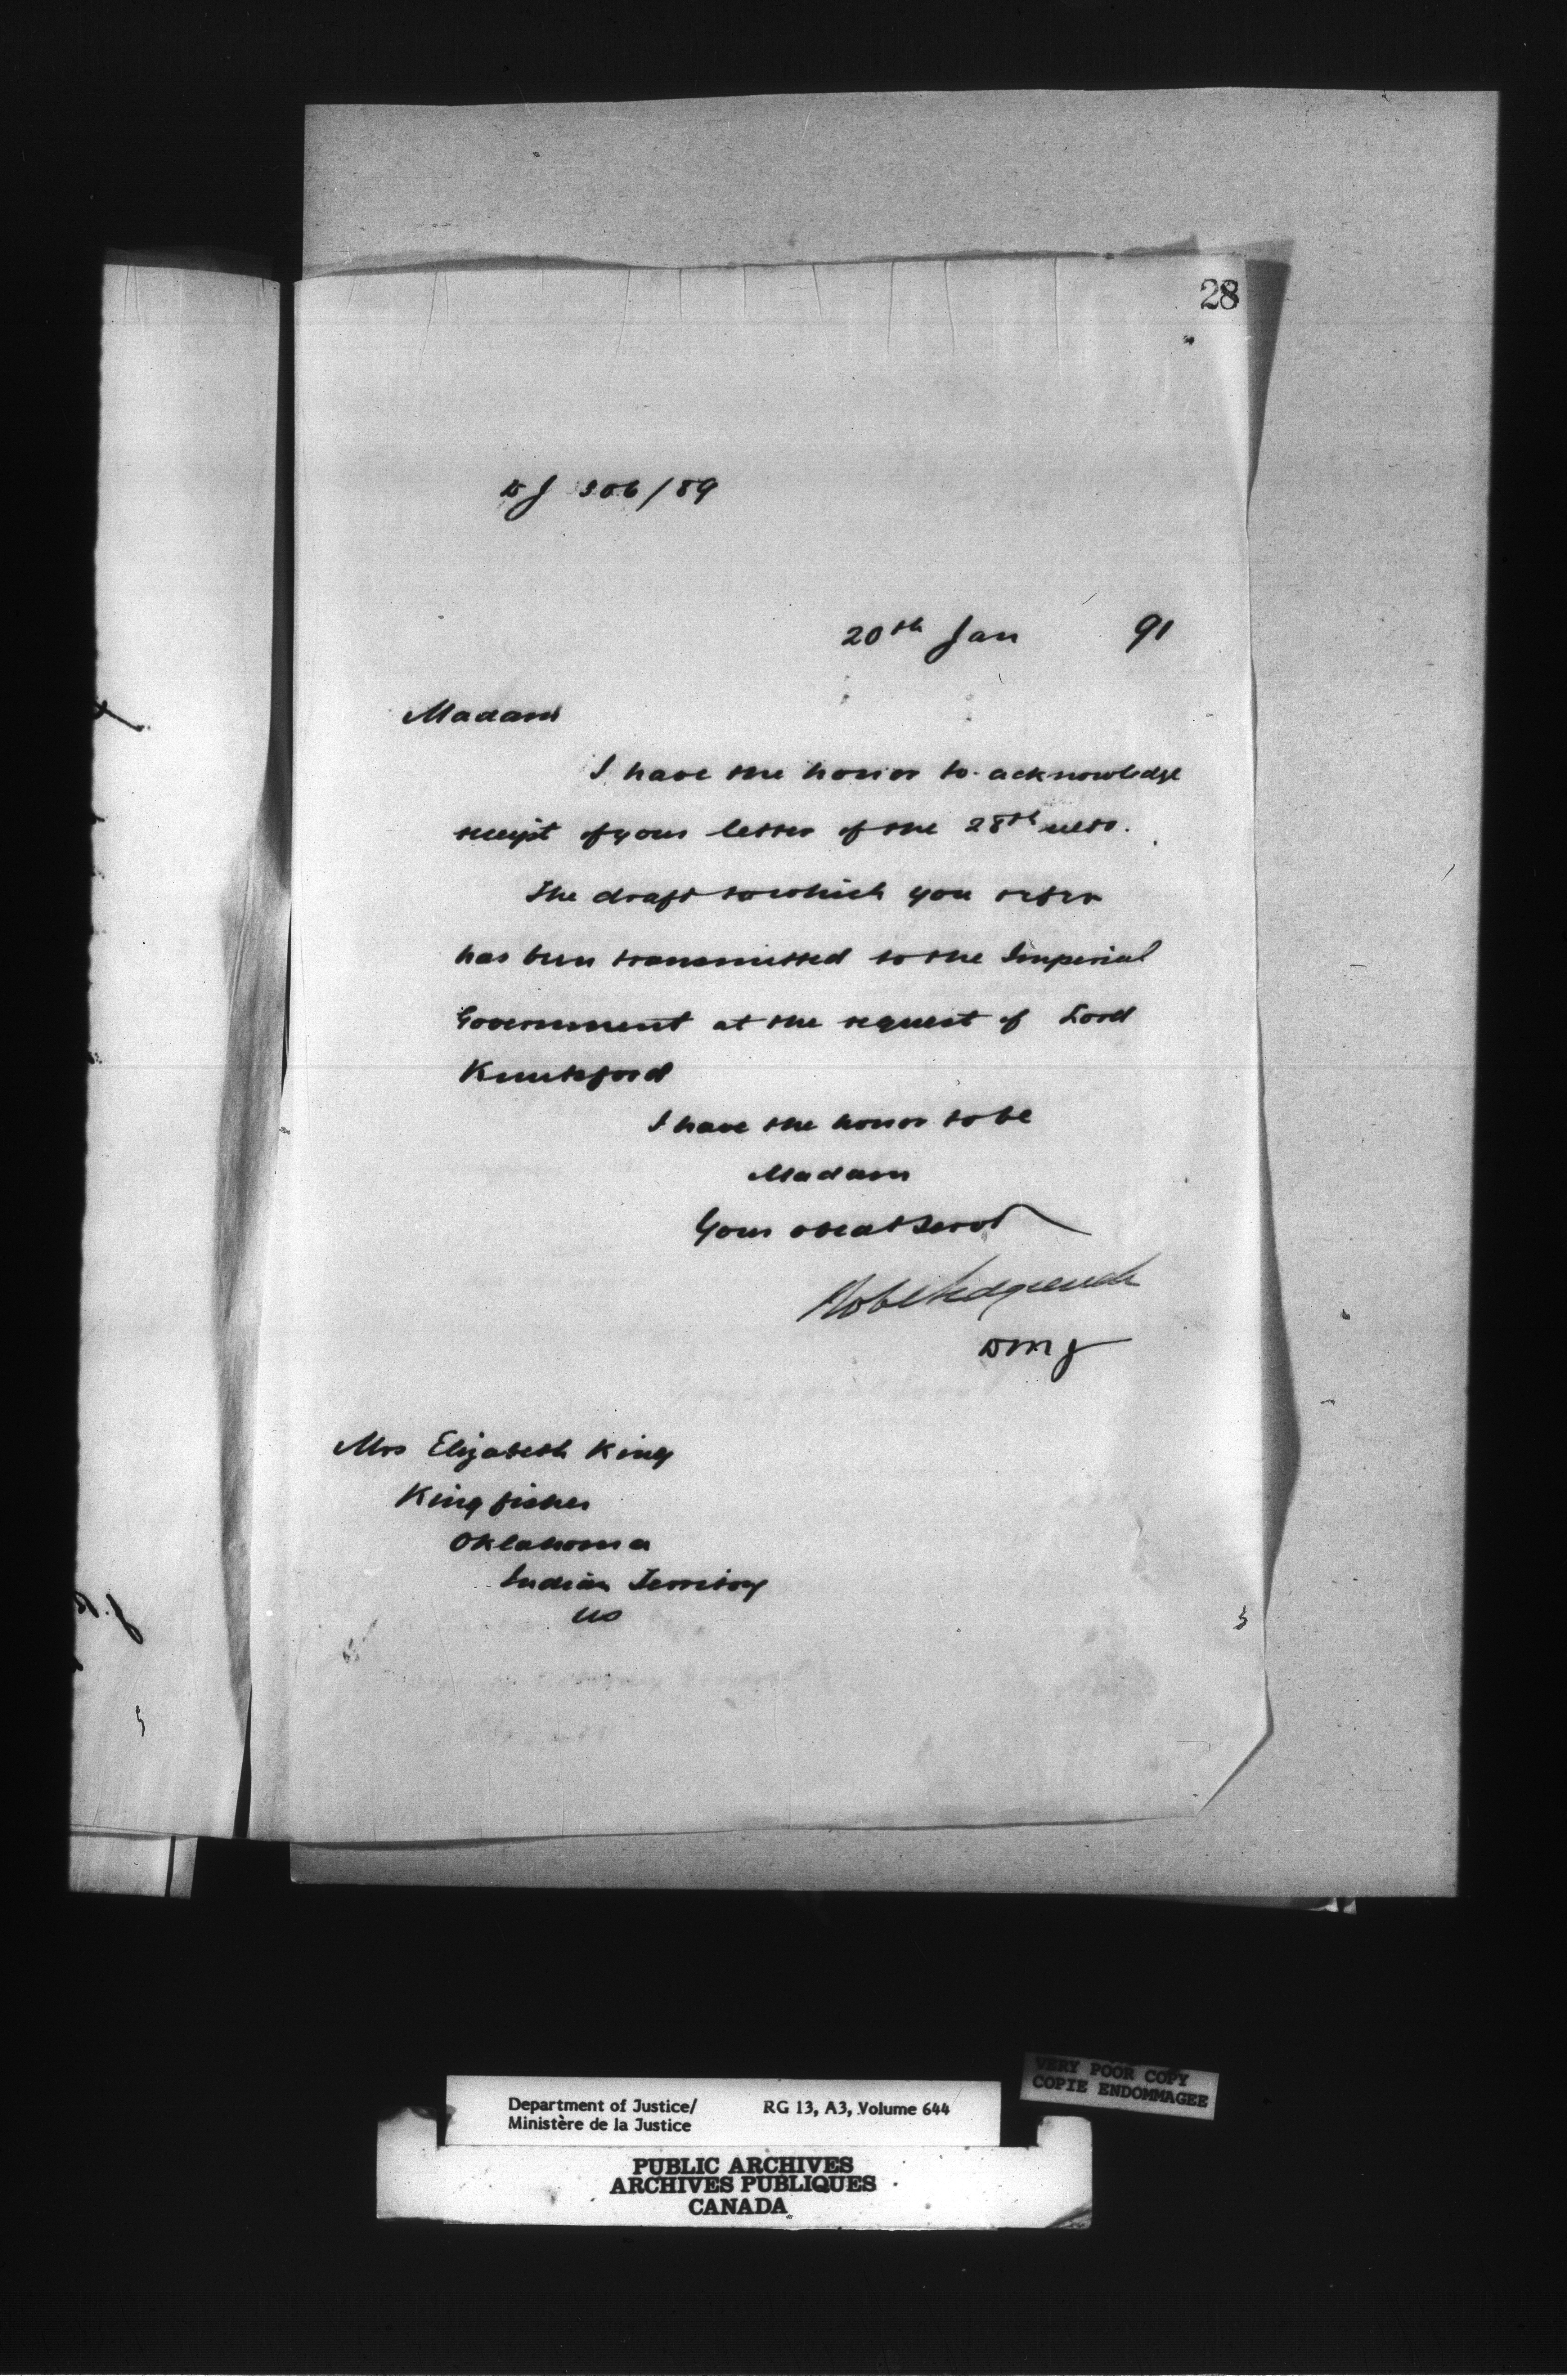 28
DJ 306/89
20th Jan 91
Madam
I have the honor to acknowledge
receipt of your letter of the 28th ulto.
The draft to which you refer
has been transmitted to the Imperial
Government at the request of Lord
Knutsford
I have the honor to be
Madam
Your obedt Servt
Robt Sedgewick
DMJ
Mrs Elizabeth King
King fisher
Oklahoma
Indian Territory
US
VERY POOR COPY
COPIE ENDOMMAGEE
Department of Justice/ RG 13, A3, Volume 644
Ministère de la Justice
PUBLIC ARCHIVES
ARCHIVES PUBLIQUES
CANADA